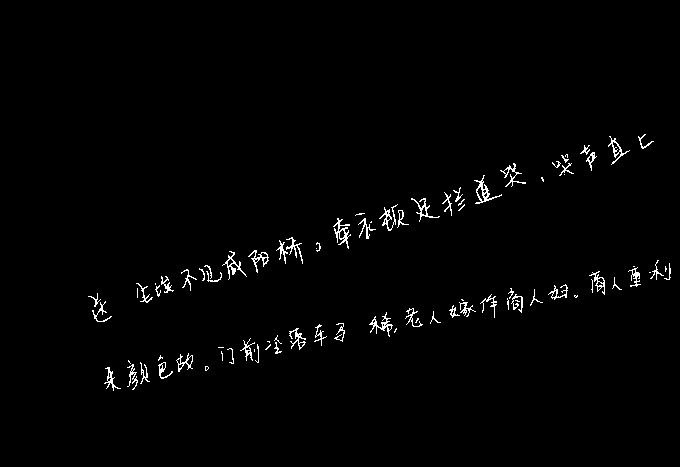 送 尘埃不见咸阳桥。牵衣顿足拦道哭,哭声直上
来颜色故。门前冷落车马 稀,老人嫁作商人妇。商人重利